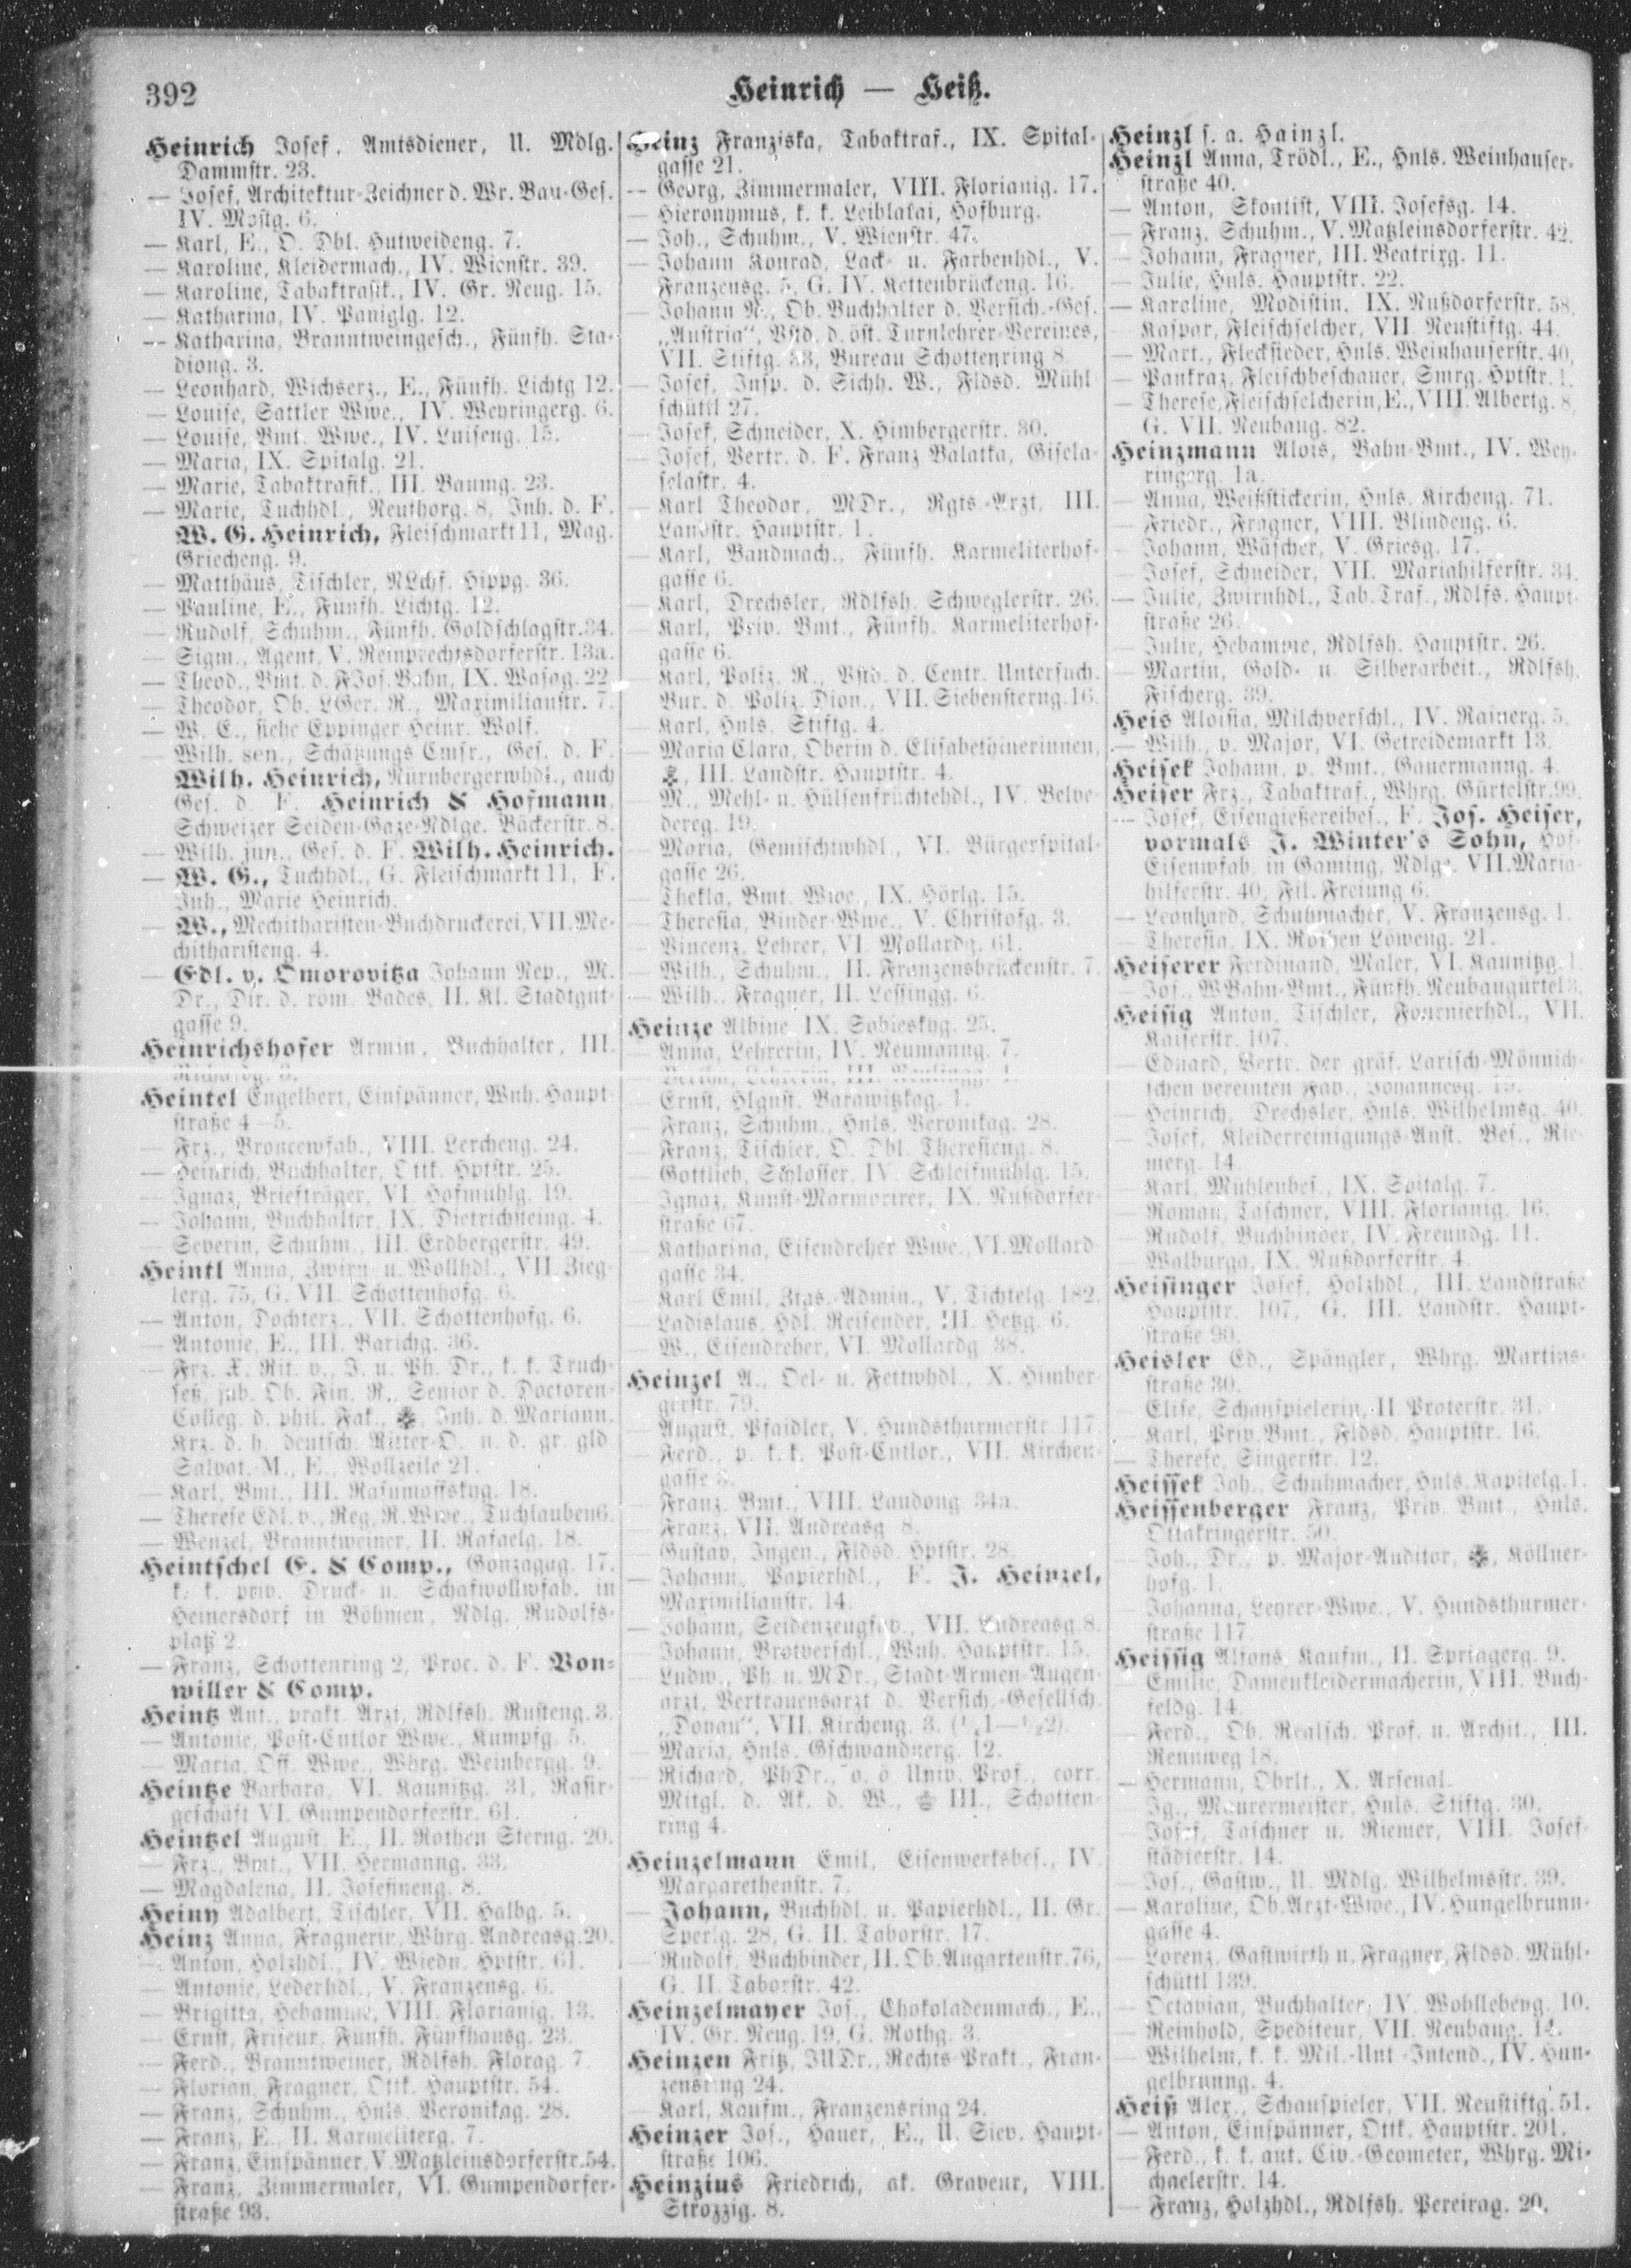 392
Heinrich — Heiß.
Heinrich Josef, Amtsdiener, U. Mdlg.
Dammstr. 23.
— Josef, Architektur-Zeichner d. Wr. Bau-Ges.
IV. Mostg. 6.
— Karl, E., O. Dbl. Hutweideng. 7.
— Karoline, Kleidermach., IV. Wienstr. 39.
— Karoline, Tabaktrafik., IV. Gr. Neug. 15.
— Katharina, IV. Paniglg. 12.
— Katharina, Branntweingesch., Fünfh. Sta-
diong. 3.
— Leonhard, Wichserz., E., Fünfh. Lichtg 12.
— Louise, Sattler Wwe., IV. Weyringerg. 6.
— Louise, Bmt. Wwe., IV. Luiseng. 15.
— Maria, IX. Spitalg. 21.
— Marie, Tabaktrafik., III. Baumg. 23.
— Marie, Tuchhdl., Neuthorg. 8, Inh. d. F.
W. G. Heinrich, Fleischmarkt 11, Mag.
Griecheng. 9.
— Matthäus, Tischler, NLchf. Hippg. 36.
— Pauline, E., Fünfh. Lichtg. 12.
— Rudolf, Schuhm., Fünfh. Goldschlagstr. 34.
— Sigm., Agent, V. Reinprechtsdorferstr. 13a.
— Theod., Bmt. d. FJos. Bahn, IX. Wasag. 22
— Theodor, Ob. LGer. R., Maximilianstr. 7.
— W. E., siehe Eppinger Heinr. Wolf.
— Wilh. sen., Schätzungs Cmsr., Ges. d. F.
Wilh. Heinrich, Nürnbergerwhdl., auch
Ges. d. F. Heinrich & Hofmann
Schweizer Seiden-Gaze-Ndlge. Bäckerstr. 8.
— Wilh. jun., Ges. d. F. Wilh. Heinrich.
— W. G., Tuchhdl., G. Fleischmarkt 11, F.
Inh., Marie Heinrich.
— W., Mechitharisten-Buchdruckerei, VII. Me-
chitharisteng. 4.
— Edl. v. Omorovitza Johann Nep., M.
Dr., Dir. d. röm. Bades, II. Kl. Stadtgut-
gasse 9.
Heinrichshofer Armin, Buchhalter, III.
Heintel Engelbert, Einspänner, Wnh. Haupt-
straße 4—5.
— Frz., Broncewfab., VIII. Lercheng. 24.
— Heinrich, Buchhalter, Ottk. Hptstr. 25.
— Ignaz, Briefträger, VI. Hofmühlg. 19.
— Johann, Buchhalter, IX. Dietrichsteing. 4.
— Severin, Schuhm., III. Erdbergerstr. 49.
Heintl Anna, Zwirn- u. Wollhdl., VII. Zieg-
lerg. 75, G. VII. Schottenhofg. 6.
— Anton, Dochterz., VII. Schottenhofg. 6.
— Antonie, E., III. Barichg. 36.
— Frz. X. Rit. v., J. u. Ph. Dr., k. k. Truch-
seß, jub. Ob. Fin. R., Senior d. Doctoren-
Colleg. d. phil. Fak., Inh. d. Mariann.
Krz. d. h. deutsch. Ritter-O. u. d. gr. gld.
Salvat. M., E., Wollzeile 21.
— Karl, Bmt., III. Rasumoffskyg. 18.
— Therese Edl. v., Reg. R. Wwe., Tuchlauben 6.
— Wenzel, Branntweiner, II. Rafaelg. 18.
Heintschel E. & Comp., Gonzagag. 17.
k. k. priv. Druck- u. Schafwollwfab. in
Heinersdorf in Böhmen, Ndlg. Rudolfs-
platz 2.
— Franz, Schottenring 2, Proc. d. F. Von-
willer & Comp.
Heintz Ant., prakt. Arzt, Rdlfsh. Rusteng. 3.
— Antonie, Post-Cntlor Wwe., Kumpfg. 5.
— Maria, Off. Wwe., Whrg. Weinbergg. 9.
Heintze Barbara, VI. Kaunitzg. 31, Rasir-
geschäft VI. Gumpendorferstr. 61.
Heintzel August, E., II. Rothen Sterng. 20.
— Frz., Bmt., VII. Hermanng. 33.
— Magdalena, II. Josefineng. 8.
Heiny Adalbert, Tischler, VII. Halbg. 5.
Heinz Anna, Fragnerin, Whrg. Andreasg. 20.
— Anton, Holzhdl., IV. Wiedn. Hptstr. 61.
— Antonie, Lederhdl., V. Franzensg. 6.
— Brigitta, Hebamme, VIII. Florianig. 13.
— Ernst, Friseur, Fünfh. Fünfhausg. 23.
— Ferd., Branntweiner, Rdlfsh. Florag. 7.
— Florian, Fragner, Ottk. Hauptstr. 54.
— Franz, Schuhm., Hnls. Veronikag. 28.
— Franz, E., II. Karmeliterg. 7.
— Franz, Einspänner, V. Matzleinsdorferstr. 54.
— Franz, Zimmermaler, VI. Gumpendorfer-
straße 93.
Heinz Franziska, Tabaktraf., IX. Spital-
gasse 21.
— Georg, Zimmermaler, VIII. Florianig. 17.
— Hieronymus, k. k. Leiblakai, Hofburg.
— Joh., Schuhm., V. Wienstr. 47.
— Johann Konrad, Lack- u. Farbenhdl., V.
Franzensg. 5, G. IV. Kettenbrückeng. 16.
— Johann N., Ob. Buchhalter d. Versich.-Ges.
„Austria", Vstd. d. öst. Turnlehrer-Vereines,
VII. Stiftg. 33, Bureau Schottenring 8.
— Josef, Insp. d. Sichh. W., Fldsd. Mühl-
schüttl 27.
— Josef, Schneider, X. Himbergerstr. 30.
— Josef, Vertr. d. F. Franz Balatka, Gisela-
selastr. 4.
— Karl Theodor, MDr., Rgts.-Arzt, III.
Landstr. Hauptstr. 1.
— Karl, Bandmach., Fünfh. Karmeliterhof-
gasse 6.
— Karl, Drechsler, Rdlfsh. Schweglerstr. 26.
— Karl, Priv. Bmt., Fünfh. Karmeliterhof-
gasse 6.
— Karl, Poliz. R., Vstd. d. Centr. Untersuch.
Bur. d. Poliz. Dion., VII. Siebensterng. 16.
— Karl, Hnls. Stiftg. 4.
— Maria Clara, Oberin d. Elisabethinerinnen,
III. Landstr. Hauptstr. 4.
— M., Mehl- u. Hülsenfrüchtehdl., IV. Belve-
dereg. 19.
— Maria, Gemischtwhdl., VI. Bürgerspital-
gasse 26.
— Thekla, Bmt. Wwe., IX. Hörlg. 15.
— Theresia, Binder-Wwe., V. Christofg. 3.
— Vincenz, Lehrer, VI. Mollardg. 61.
— Wilh., Schuhm., II. Franzensbrückenstr. 7.
— Wilh., Fragner, II. Lessingg. 6.
Heinze Albine, IX. Sobieskyg. 25.
— Anna, Lehrerin, IV. Neumanng. 7.
— Ernst, Hlgnst. Barawitzkag. 1.
— Franz, Schuhm., Hnls. Veronikag. 28.
— Franz, Tischler, O. Dbl. Theresieng. 8.
— Gottlieb, Schlosser, IV. Schleifmühlg. 15.
— Ignaz, Kunst-Marmorirer, IX. Nußdorfer-
straße 67.
— Katharina, Eisendreher Wwe., VI. Mollard-
gasse 34.
— Karl Emil, Ztgs.-Admin., V. Tichtelg. 182.
— Ladislaus, Hdl. Reisender, III. Hetzg. 6.
— W., Eisendreher, VI. Mollardg 38.
Heinzel A., Oel- u. Fettwhdl., X. Himber-
gerstr. 79.
— August, Pfaidler, V. Hundsthurmerstr. 117.
— Ferd., p. k. k. Post-Cntlor., VII. Kirchen-
gasse 3.
— Franz, Bmt., VIII. Laudong. 34a.
— Franz, VII. Andreasg. 8.
— Gustav, Ingen., Fldsd. Hptstr. 28.
— Johann, Papierhdl., F. J. Heinzel,
Maximilianstr. 14.
— Johann, Seidenzeugfab., VII. Andreasg. 8.
— Johann, Brotverschl., Wnh. Hauptstr. 15.
— Ludw., Ph. u. MDr., Stadt-Armen-Augen-
arzt, Vertrauensarzt d. Versich.-Gesellsch.
„Donau", VII. Kircheng. 3. (½1—½2).
— Maria, Hnls. Gschwandnerg. 12.
— Richard, PhDr., o. ö. Univ. Prof., corr.
Mitgl. d. Ak. d. W., III., Schotten-
ring 4.
Heinzelmann Emil, Eisenwerksbes., IV.
Margarethenstr. 7.
— Johann, Buchhdl. u. Papierhdl., II. Gr.
Sperlg. 28, G. II. Taborstr. 17.
— Rudolf, Buchbinder, II. Ob. Augartenstr. 76,
G. II. Taborstr. 42.
Heinzelmayer Jos., Chokoladenmach., E.,
IV. Gr. Neug. 19, G. Rothg. 3.
Heinzen Fritz, JUDr., Rechts-Prakt., Fran-
zensring 24.
— Karl, Kaufm., Franzensring 24.
Heinzer Jos., Hauer, E., U. Siev. Haupt-
straße 106.
Heinzius Friedrich, ak. Graveur, VIII.
Strozzig. 8.
Heinzl s. a. Hainzl.
Heinzl Anna, Trödl., E., Hnls. Weinhauser-
straße 40.
— Anton, Skontist, VIII. Josefsg. 14.
— Franz, Schuhm., V. Matzleinsdorferstr. 42.
— Johann, Fragner, III. Beatrixg. 11.
— Julie, Hnls. Hauptstr. 22.
— Karoline, Modistin, IX. Nußdorferstr. 58.
— Kaspar, Fleischselcher, VII. Neustiftg. 44.
— Mart., Flecksieder, Hnls. Weinhauserstr. 40.
— Pankraz, Fleischbeschauer, Smrg. Hptstr. 1.
— Therese, Fleischselcherin, E., VIII. Albertg. 8,
G. VII. Neubaug. 82.
Heinzmann Alois, Bahn-Bmt., IV. Wey-
ringerg. 1a.
— Anna, Weißstickerin, Hnls. Kircheng. 71.
— Friedr., Fragner, VIII. Blindeng. 6.
— Johann, Wäscher, V. Griesg. 17.
— Josef, Schneider, VII. Mariahilferstr. 34.
— Julie, Zwirnhdl., Tab. Traf., Rdlfs. Haupt-
straße 26.
— Julie, Hebamme, Rdlfsh. Hauptstr. 26.
— Martin, Gold- u. Silberarbeit., Rdlfsh.
Fischerg. 39.
Heis Aloisia, Milchverschl., IV. Rainerg. 5.
— Wilh., p. Major, VI. Getreidemarkt 13.
Heisek Johann, p. Bmt., Gauermanng. 4.
Heiser Frz., Tabaktraf., Whrg. Gürtelstr. 99.
— Josef, Eisengießereibes., F. Jos. Heiser,
vormals J. Winter's Sohn, Hof-
Eisenwfab. in Gaming, Ndlg. VII. Maria-
hilferstr. 40, Fil. Freiung 6.
— Leonhard, Schuhmacher, V. Franzensg. 1.
— Theresia, IX. Rothen Löweng. 21.
Heiserer Ferdinand, Maler, VI. Kaunitzg. 1.
— Jos., WBahn-Bmt., Fünfh. Neubaugürtel
Heisig Anton, Tischler, Fournierhdl., VII.
Kaiserstr. 107.
— Eduard, Vertr. der gräf. Larisch-Mönnich-
schen vereinten Fab., Johannesg.
— Heinrich, Drechsler, Hnls. Wilhelmsg. 40.
— Josef, Kleiderreinigungs-Anst. Bes., Rie-
merg. 14.
— Karl, Mühlenbes., IX. Spitalg. 7.
— Roman, Taschner, VIII. Florianig. 16.
— Rudolf, Buchbinder, IV. Freundg. 11.
— Walburga, IX. Nußdorferstr. 4.
Heisinger Josef, Holzhdl., III. Landstraße
Hauptstr. 107, G. III. Landstr. Haupt-
straße 90.
Heisler Ed., Spängler, Whrg. Martins-
straße 30.
— Elise, Schauspielerin, II. Praterstr. 31.
— Karl, Priv. Bmt., Fldsd. Hauptstr. 16.
— Therese, Singerstr. 12.
Heissek Joh., Schuhmacher, Hnls. Kapitelg. 1.
Heissenberger Franz, Priv. Bmt., Hnls.
Ottakringerstr. 50.
— Joh., Dr., p. Major-Auditor, Köllner-
hofg. 1.
— Johanna, Lehrer-Wwe., V. Hundsthurmer-
straße 117.
Heissig Alfons, Kaufm., II. Springerg. 9.
— Emilie, Damenkleidermacherin, VIII. Buch-
feldg. 14.
— Ferd., Ob. Realsch. Prof. u. Archit., III.
Rennweg 18.
— Hermann, Obrlt., X. Arsenal.
— Ig., Maurermeister, Hnls. Stiftg. 30.
— Josef, Taschner u. Riemer, VIII. Josef-
städterstr. 14.
— Jos., Gastw., U. Mdlg. Wilhelmsstr. 39.
— Karoline, Ob. Arzt-Wwe., IV. Hungelbrunn-
gasse 4.
— Lorenz, Gastwirth u. Fragner, Fldsd. Mühl-
schüttl 139.
— Octavian, Buchhalter, IV. Wohllebeng. 10.
— Reinhold, Spediteur, VII. Neubaug. 12.
— Wilhelm, k. k. Mil.-Unt.-Intend., IV. Hun-
gelbrunng. 4.
Heiß Alex., Schauspieler, VII. Neustiftg. 51.
— Anton, Einspänner, Ottk. Hauptstr. 201.
— Ferd., k. k. aut. Civ.-Geometer, Whrg. Mi-
chaelerstr. 14.
— Franz, Holzhdl., Rdlfsh. Pereirag. 20.